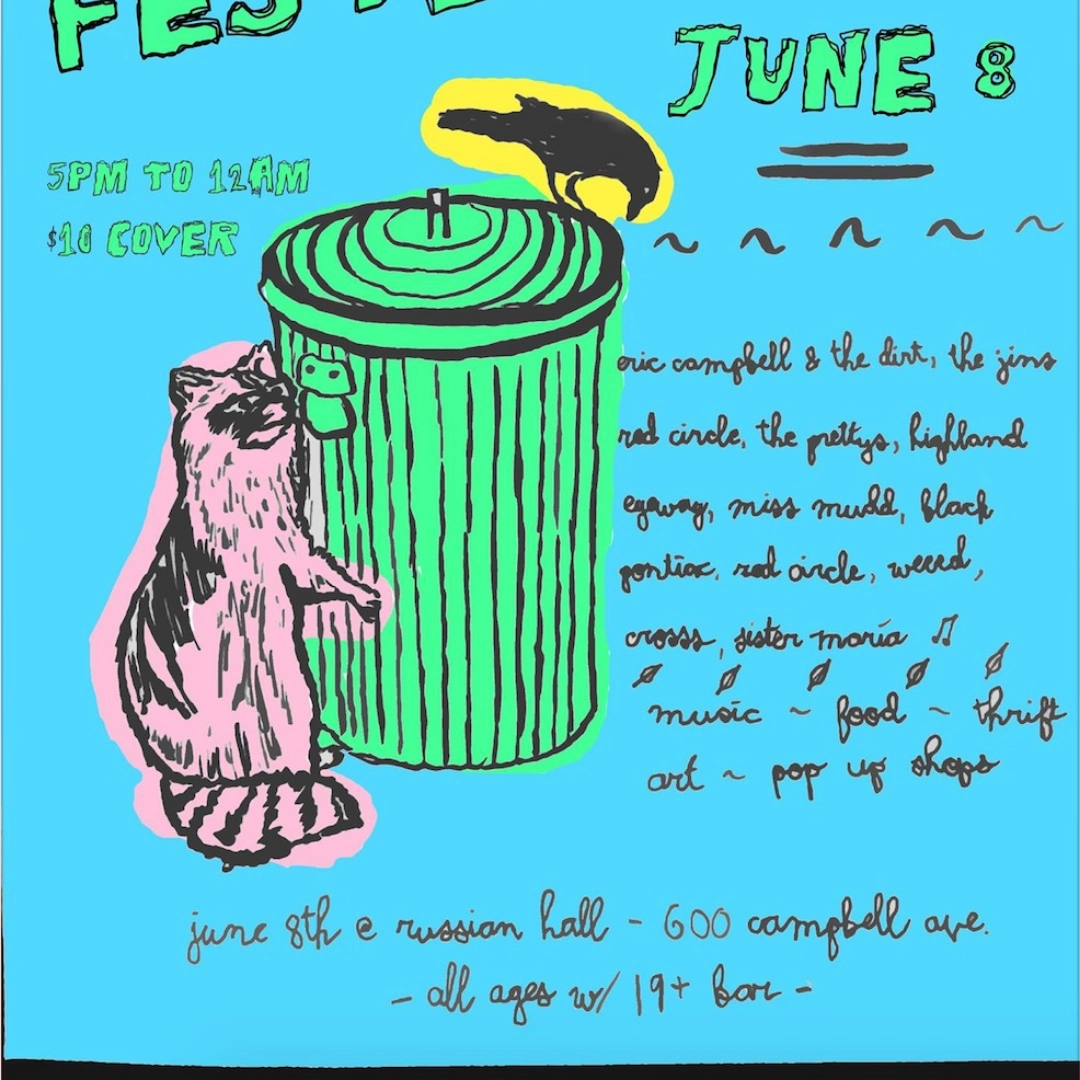 JUNE 8
5PM TO 12AM
$10 COVER
eric campbell & the dirt, the jins
red circle, the prettys, highland
eyeway, miss mudd, black
pontiac, red circle, weeed,
crosss, sister maria
music ~ food ~ thrift
art ~ pop up shops
june 8th @ russian hall - 600 campbell ave.
- all ages w/ 19+ bar -